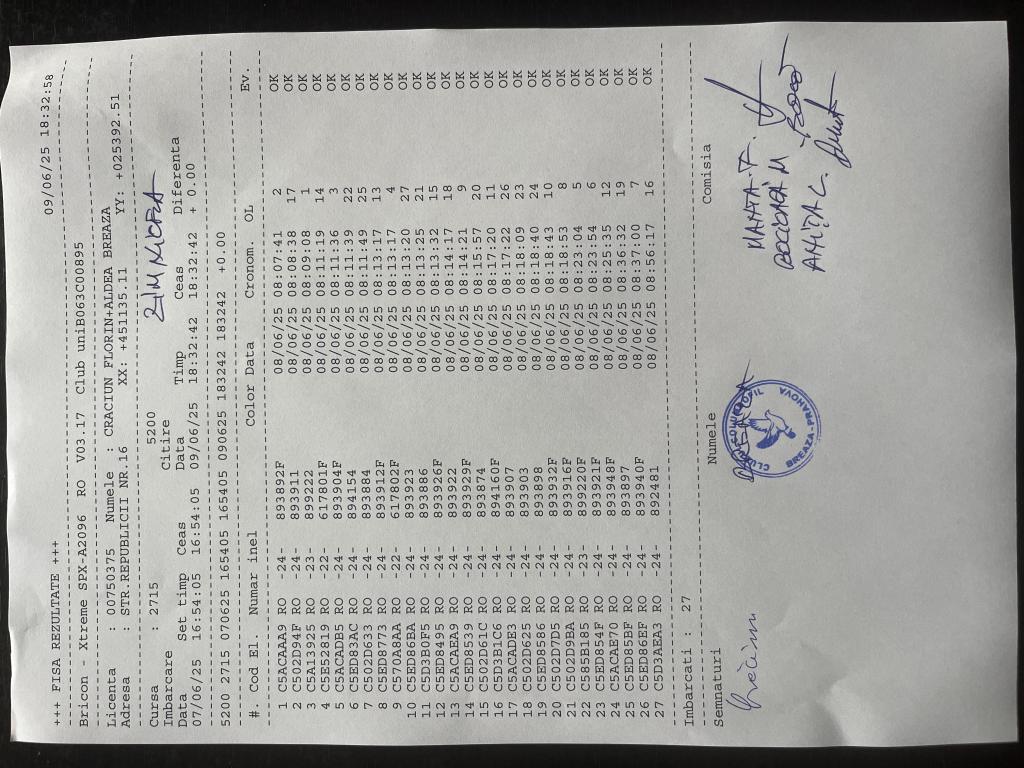 +++ FISA REZULTATE +++ 09/06/25 18:32:58
Bricon - Xtreme SPX-A2096 RO V03.17 Club uniB063C00895
Licenta : 00750375 Numele : CRACIUN FLORIN+ALDEA BREAZA
Adresa : STR.REPUBLICII NR.16 XX: +451135.11 YY: +025392.51
Cursa : 2715 5200
Imbarcare Citire
Data Set timp Ceas Data Timp Ceas Diferenta
07/06/25 16:54:05 16:54:05 09/06/25 18:32:42 18:32:42 + 0.00
5200 2715 070625 165405 165405 090625 183242 183242 +0.00
#. Cod El. Numar inel Color Data Cronom. OL Ev.
1 C5ACAAA9 RO -24- 893892F 08/06/25 08:07:41 2 OK
2 C502D94F RO -24- 893911 08/06/25 08:08:38 17 OK
3 C5A13925 RO -23- 899222F 08/06/25 08:09:08 1 OK
4 C5E52819 RO -22- 617801F 08/06/25 08:11:19 14 OK
5 C5ACADB5 RO -24- 893904F 08/06/25 08:11:36 3 OK
6 C5ED83AC RO -24- 894154 08/06/25 08:11:39 22 OK
7 C502D633 RO -24- 893884 08/06/25 08:11:49 25 OK
8 C5ED8773 RO -24- 893912F 08/06/25 08:13:17 13 OK
9 C570A8AA RO -22- 617802F 08/06/25 08:13:17 4 OK
10 C5ED86BA RO -24- 893923 08/06/25 08:13:20 27 OK
11 C5D3B0F5 RO -24- 893886 08/06/25 08:13:25 21 OK
12 C5ED8495 RO -24- 893926F 08/06/25 08:13:32 15 OK
13 C5ACAEA9 RO -24- 893922 08/06/25 08:14:17 18 OK
14 C5ED8539 RO -24- 893929F 08/06/25 08:14:21 9 OK
15 C502D61C RO -24- 893874 08/06/25 08:15:57 20 OK
16 C5D3B1C6 RO -24- 894160F 08/06/25 08:17:20 11 OK
17 C5ACADE3 RO -24- 893907 08/06/25 08:17:22 26 OK
18 C502D625 RO -24- 893903 08/06/25 08:18:09 23 OK
19 C5ED8586 RO -24- 893898 08/06/25 08:18:40 24 OK
20 C502D7D5 RO -24- 893932F 08/06/25 08:18:43 10 OK
21 C502D9BA RO -24- 893916F 08/06/25 08:18:53 8 OK
22 C585B185 RO -23- 899220F 08/06/25 08:23:04 5 OK
23 C5ED854F RO -24- 893921F 08/06/25 08:23:54 6 OK
24 C5ACAE70 RO -24- 893948F 08/06/25 08:25:35 12 OK
25 C5ED85BF RO -24- 893897 08/06/25 08:36:32 19 OK
26 C5ED86EF RO -24- 893940F 08/06/25 08:37:00 7 OK
27 C5D3AEA3 RO -24- 892481 08/06/25 08:56:17 16 OK
Imbarcati : 27
Semnaturi Numele Comisia
CLUBUL COLUMBOFIL
BREAZA-PRAHOVA